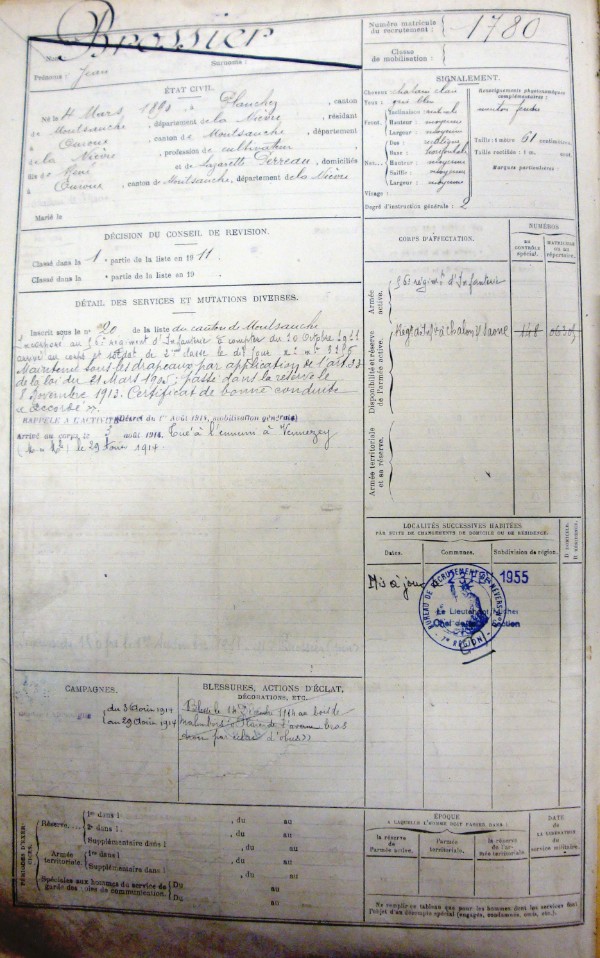 Brossier
Nom :
Surnoms :
Prénoms : Jean
Numéro matricule
du recrutement :
1780
Classe
de mobilisation :
ÉTAT CIVIL.
Né le 4 Mars, à Planchez, canton
de Montsauche, département de la Nièvre, résidant
à Ouroux, canton de Montsauche, département
de la Nièvre, profession de cultivateur
fils de
et de Lazarette Perreau, domiciliés
à Ouroux, canton de Montsauche, département de la Nièvre
Marié le
SIGNALEMENT.
Cheveux châtain clair
Yeux : gris bleu
Front.
Inclinaison
Hauteur : moyenne
Largeur : moyenne
Nez...
Dos : rectiligne
Base : horizontale
Hauteur : moyenne
Saillie : moyenne
Largeur : moyenne
Visage :
Renseignements physionomiques
complémentaires :
menton
Taille : 1 mètre 61 centimètres.
Taille rectifiée : 1 m. cent.
Marques particulières :
Degré d'instruction générale : 2
DÉCISION DU CONSEIL DE REVISION.
Classé dans la 1e partie de la liste en 1911
Classé dans la e partie de la liste en 19
DÉTAIL DES SERVICES ET MUTATIONS DIVERSES.
Inscrit sous le n° 20 de la liste du canton de Montsauche
Incorporé au régiment d'Infanterie à compter du 10 Octobre 1911
arrivé au corps et soldat de 2me classe le dit jour
Maintenu sous les drapeaux par application de l'art. 33
de la loi du 21 Mars 1905 ; passé dans la réserve le
8 Novembre 1913. Certificat de bonne conduite
« Accordé ».
RAPPELÉ A L'ACTIVITÉ (Décret du 1er Août 1914, mobilisation générale)
Arrivé au corps le 3 août 1914. Tué à l'ennemi à Vennezey
le 29 Août 1914.
CORPS D'AFFECTATION.
NUMÉROS
AU
CONTRÔLE
spécial.
MATRICULE
OU AU
répertoire.
Armée
active.
régimt d'Infanterie
Disponibilité et réserve
de l'armée active.
à Chalon s/ Saône
148
Armée territoriale
et sa réserve.
LOCALITÉS SUCCESSIVES HABITÉES
PAR SUITE DE CHANGEMENTS DE DOMICILE OU DE RÉSIDENCE.
Dates.
Communes.
Subdivision de région.
D. DOMICILE.
R. RÉSIDENCE.
Mis à jour
1955
BUREAU DE RECRUTEMENT DE NEVERS
Le Lieutenant
Chef de Section
7e RÉGION
CAMPAGNES.
du 3 Août 1914
au 29 Août 1914
BLESSURES, ACTIONS D'ÉCLAT,
DÉCORATIONS, ETC.
Blessé le 1914 au
de l'avant bras
par éclat d'obus
PÉRIODES D'EXERCICES.
Réserve...
1re dans l , du au
2e dans l , du au
Supplémentaire dans l , du au
Armée
territoriale.
1re dans l , du au
Supplémentaire dans l , du au
Spéciales aux hommes du service de
garde des voies de communication.
Du au
Du au
ÉPOQUE
A LAQUELLE L'HOMME DOIT PASSER DANS :
la réserve
de l'armée active.
l'armée
territoriale.
la réserve
de l'armée territoriale.
DATE
de
LA LIBÉRATION
du
service militaire.
Ne remplir ce tableau que pour les hommes dont les services font
l'objet d'un décompte spécial (engagés, condamnés, omis, etc.).